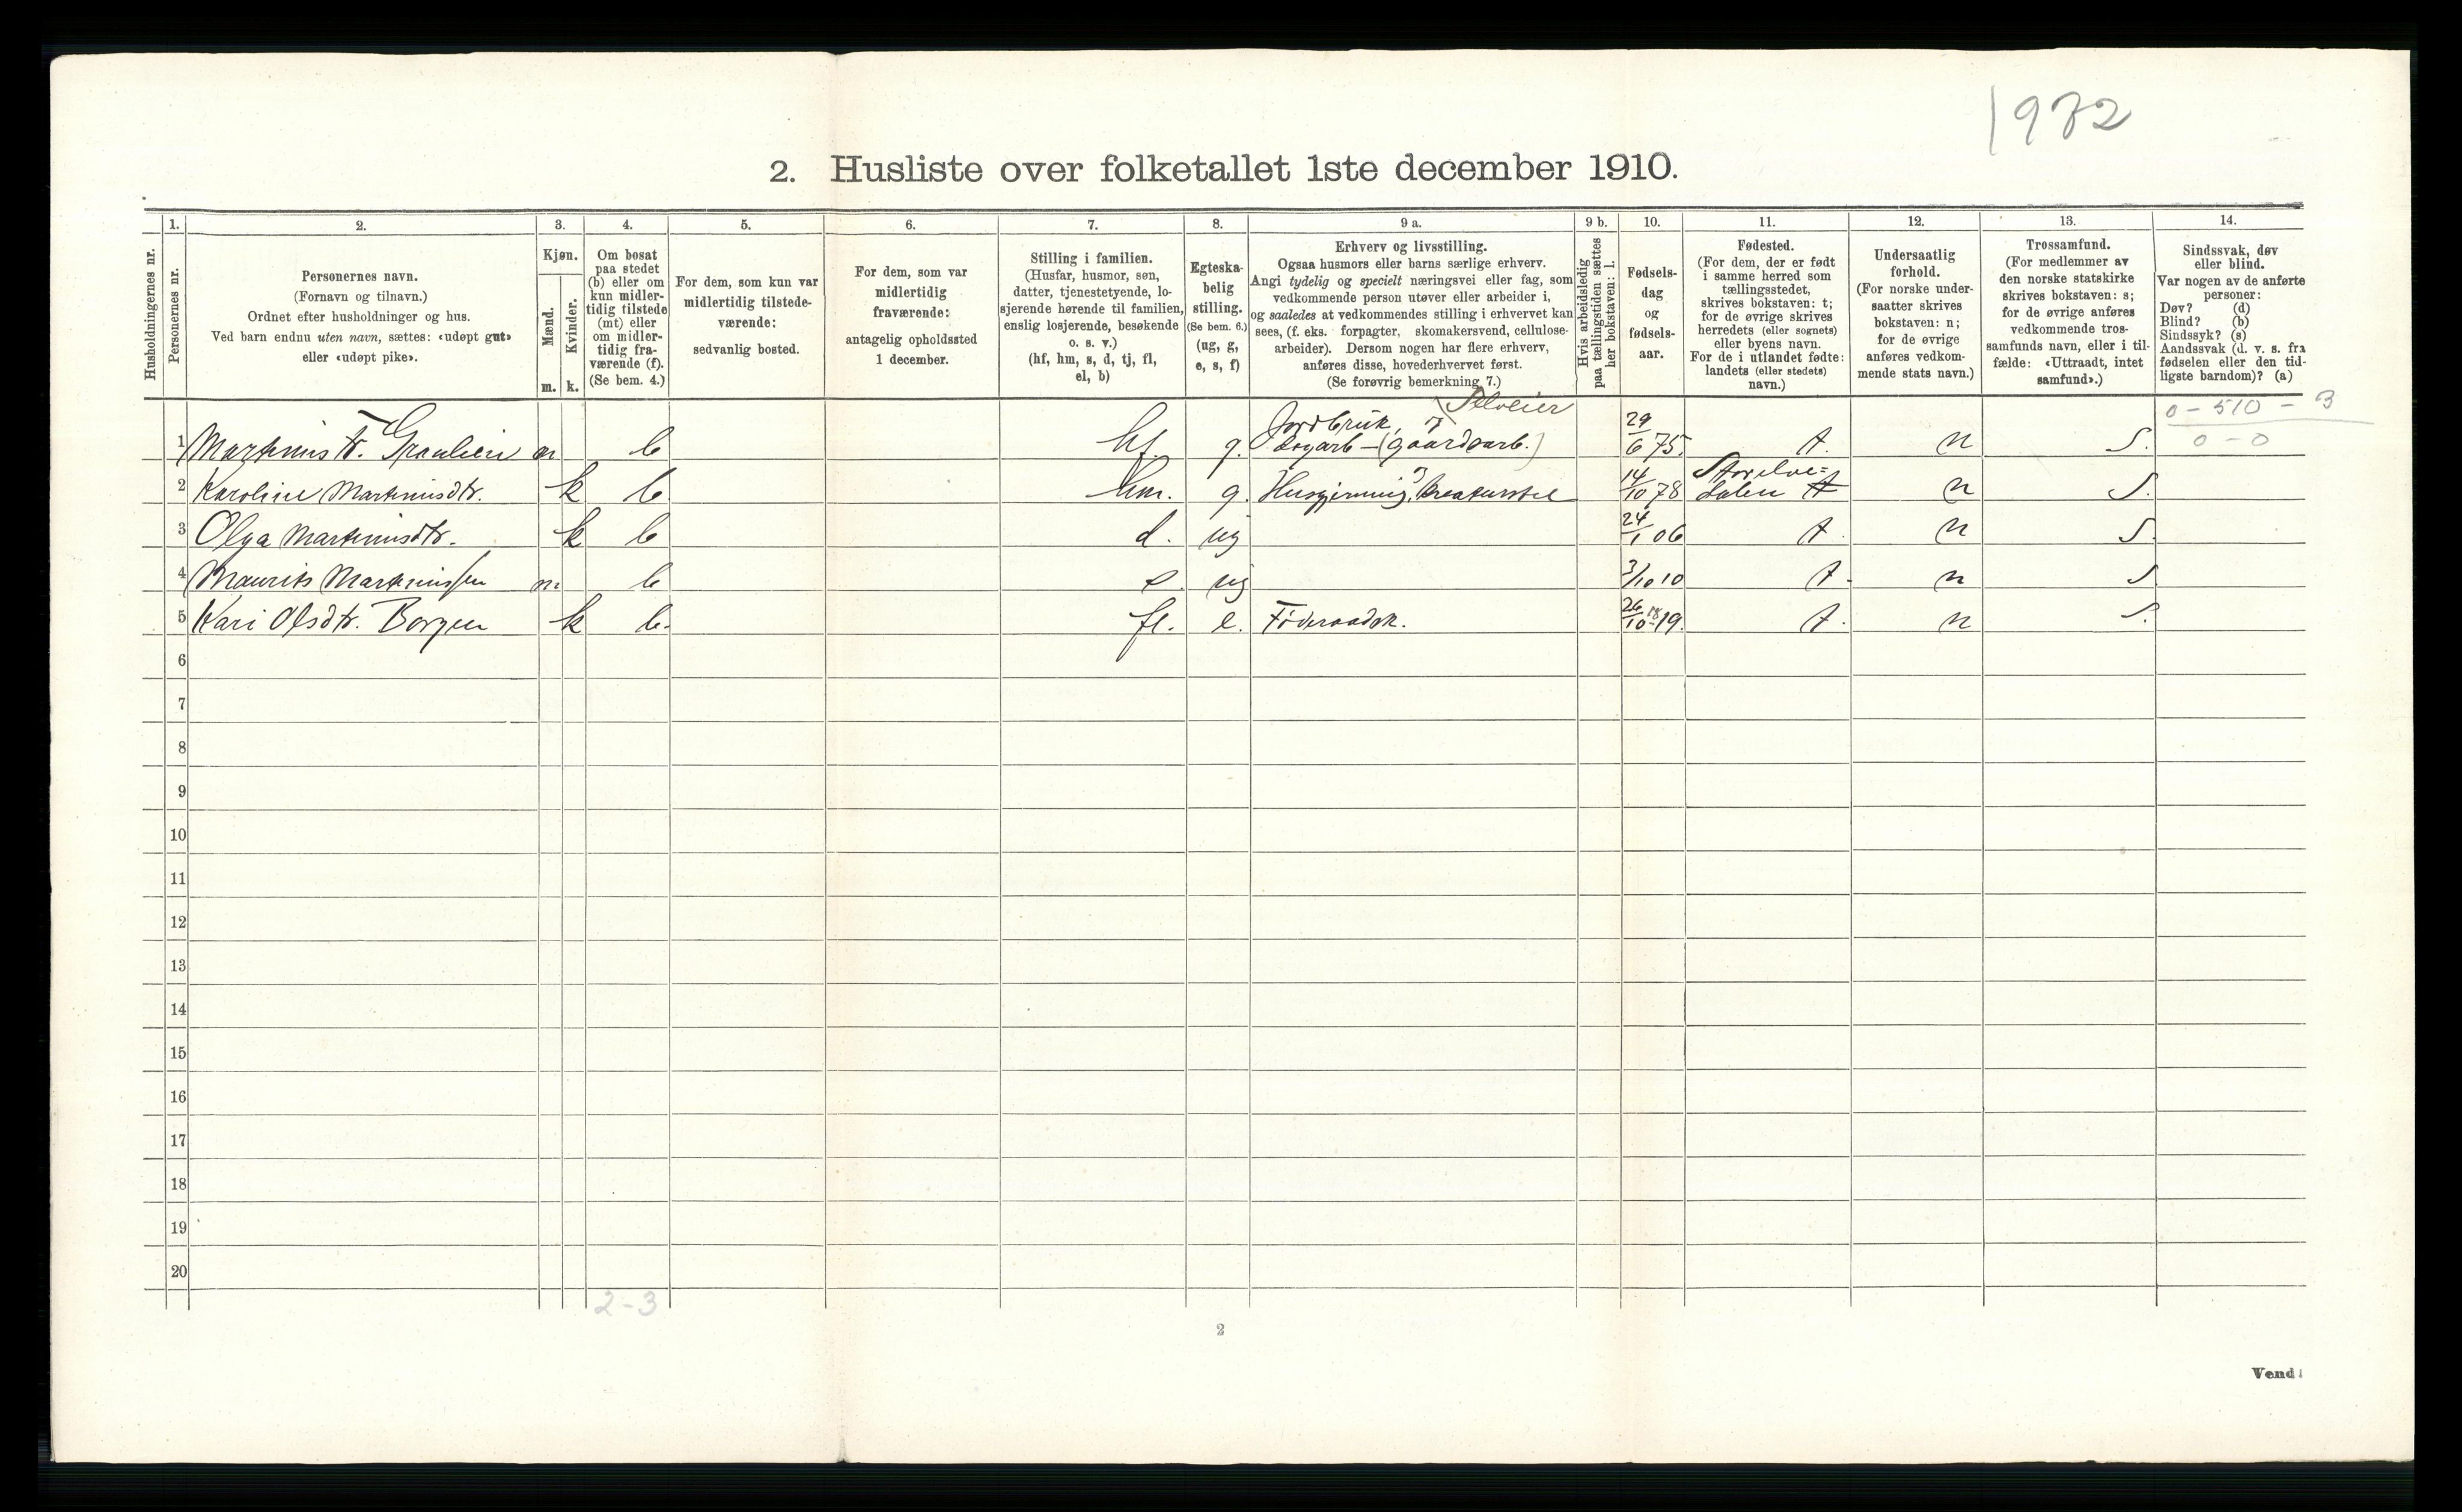 1972
2. Husliste over folketallet 1ste december 1910.
Husholdningernes nr.
1.
Personernes nr.
2.
Personernes navn.
(Fornavn og tilnavn.)
Ordnet efter husholdninger og hus.
Ved barn endnu uten navn, sættes: «udøpt gut»
eller «udøpt pike».
3.
Kjøn.
Mænd.
Kvinder.
m. k.
4.
Om bosat
paa stedet
(b) eller om
kun midler-
tidig tilstede
(mt) eller
om midler-
tidig fra-
værende (f).
(Se bem. 4.)
5.
For dem, som kun var
midlertidig tilstede-
værende:
sedvanlig bosted.
6.
For dem, som var
midlertidig
fraværende:
antagelig opholdssted
1 december.
7.
Stilling i familien.
(Husfar, husmor, søn,
datter, tjenestetyende, lo-
sjerende hørende til familien,
enslig losjerende, besøkende
o. s. v.)
(hf, hm, s, d, tj, fl,
el, b)
8.
Egteska-
belig
stilling.
(Se bem. 6.)
(ug, g,
e, s, f)
9 a.
Erhverv og livsstilling.
Ogsaa husmors eller barns særlige erhverv.
Angi tydelig og specielt næringsvei eller fag, som
vedkommende person utøver eller arbeider i,
og saaledes at vedkommendes stilling i erhvervet kan
sees, (f. eks. forpagter, skomakersvend, cellulose-
arbeider). Dersom nogen har flere erhverv,
anføres disse, hovederhvervet først.
(Se forøvrig bemerkning 7.)
9 b.
Hvis arbeidsledig
paa tællingstiden sættes
her bokstaven: l.
10.
Fødsels-
dag
og
fødsels-
aar.
11.
Fødested.
(For dem, der er født
i samme herred som
tællingsstedet,
skrives bokstaven: t;
for de øvrige skrives
herredets (eller sognets)
eller byens navn.
For de i utlandet fødte:
landets (eller stedets)
navn.)
12.
Undersaatlig
forhold.
(For norske under-
saatter skrives
bokstaven: n;
for de øvrige
anføres vedkom-
mende stats navn.)
13.
Trossamfund.
(For medlemmer av
den norske statskirke
skrives bokstaven: s;
for de øvrige anføres
vedkommende tros-
samfunds navn, eller i til-
fælde: «Uttraadt, intet
samfund».)
14.
Sindssvak, døv
eller blind.
Var nogen av de anførte
personer:
Døv? (d)
Blind? (b)
Sindssyk? (s)
Aandssvak (d. v. s. fra
fødselen eller den tid-
ligste barndom)? (a)
0 - 510 - 3
0 - 0
Selveier
Jordbruk,
1 Martinus T. Graulien m b hf. g. dagarb - (gaardsarb.) 29/6 75. t. n s.
Storelve=
2 Karoline Martinusdtr. k b hm. g. Husgjerning, Kreaturstel 14/10 78 dalen t n s.
3 Olga Martinusdtr. k b d. ug 24/1 06 t. n s.
4 Maurits Martinussen m. b s ug 3/10 10 t. n s
5 Kari Olsdtr. Borgen k b. fl. e. Føderaadsk. 26/10 18-19. t. n s.
6
7
8
9
10
11
12
13
14
15
16
17
18
19
20
2 - 3
2
Vend!